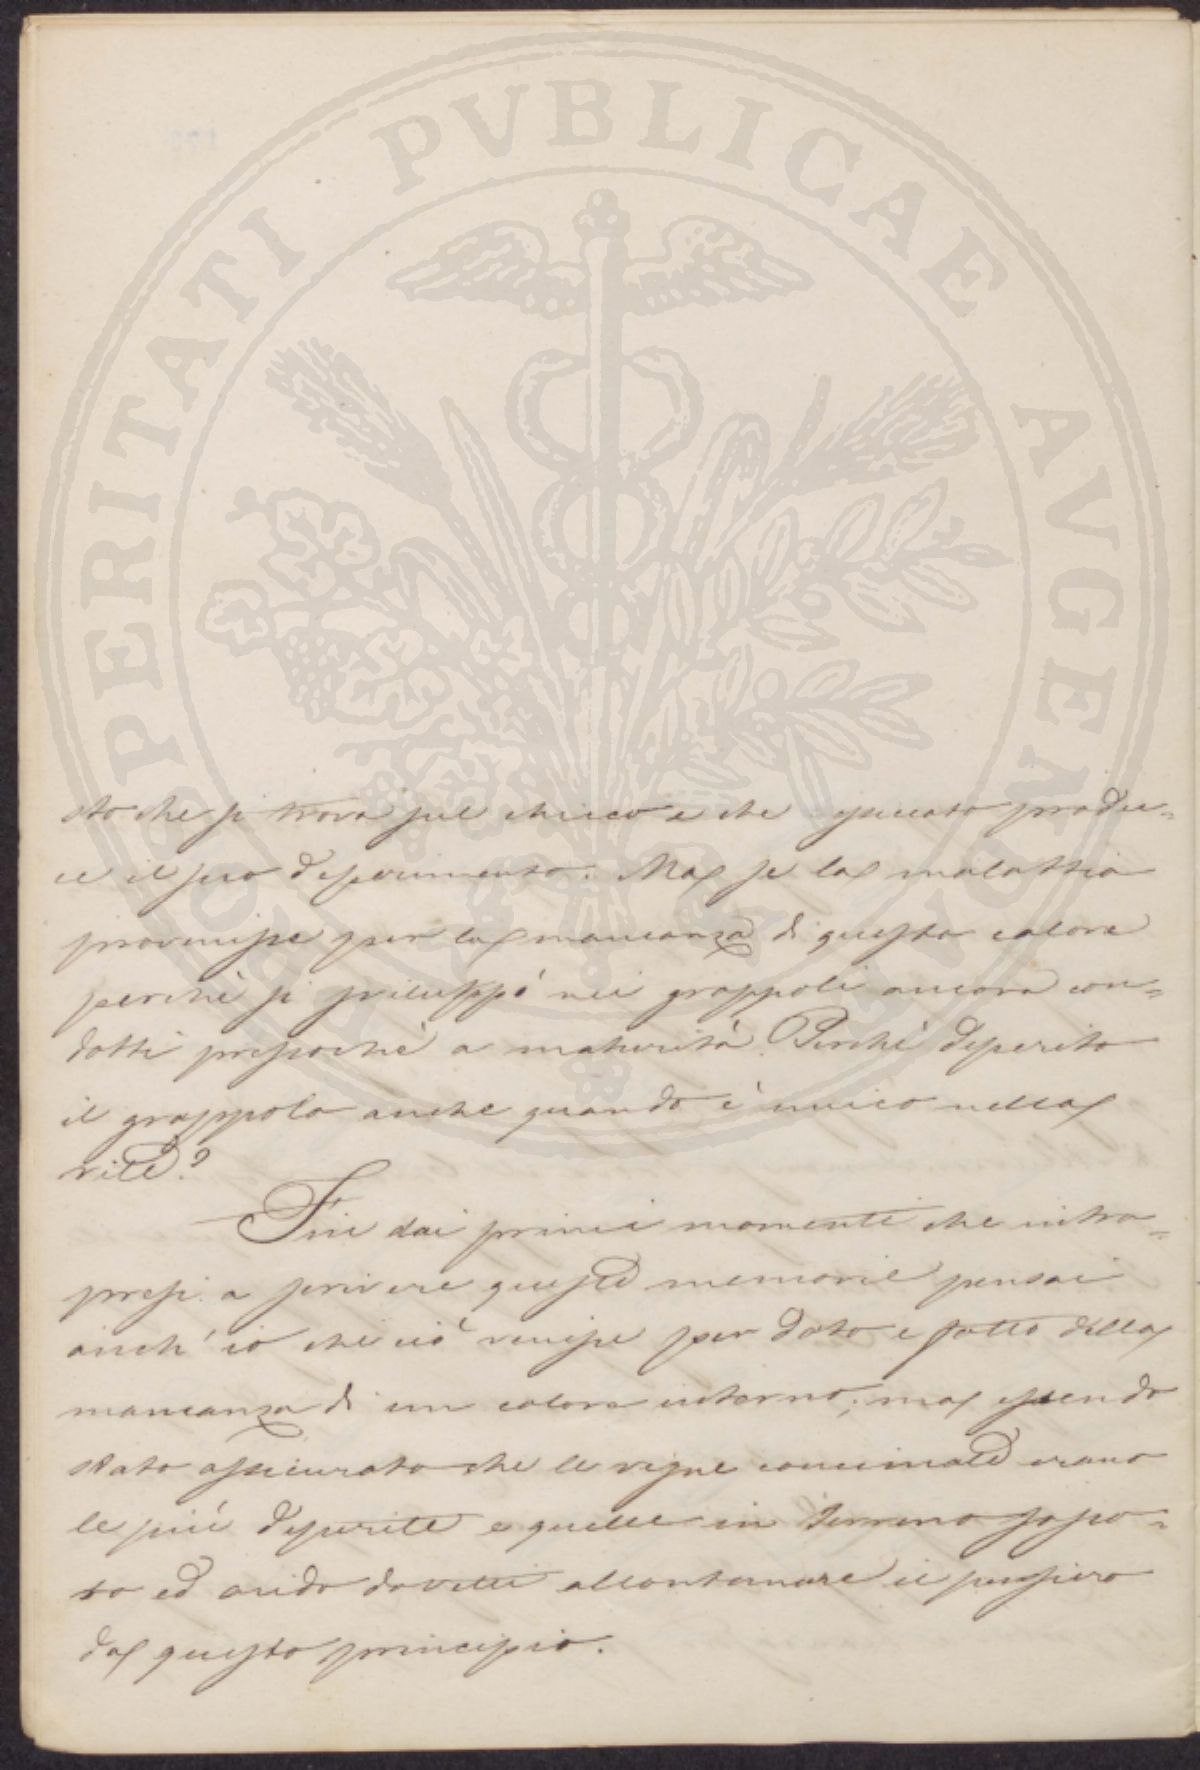 PROSPERITATI PVBLICAE AVGENDAE
sto che si trova sul chicco e che questo produ=
ce il suo deperimento. Ma se la malattia
provenisse per la mancanza di questo calore
perchè si sviluppò nei grappoli ancora con=
dotti pressochè a maturità. Perchè deperito
il grappolo anche quando è unico nella
vite?
Fin dai primi momenti che intra=
presi a scrivere queste memorie pensai
anch'io che ciò venisse per dato e fatto della
mancanza di un calore interno; ma essendo
stato assicurato che le vigne concimate erano
le più deperite e quelle in terreno sasso=
so ed arido dovetti allontanare il pensiero
da questo principio.